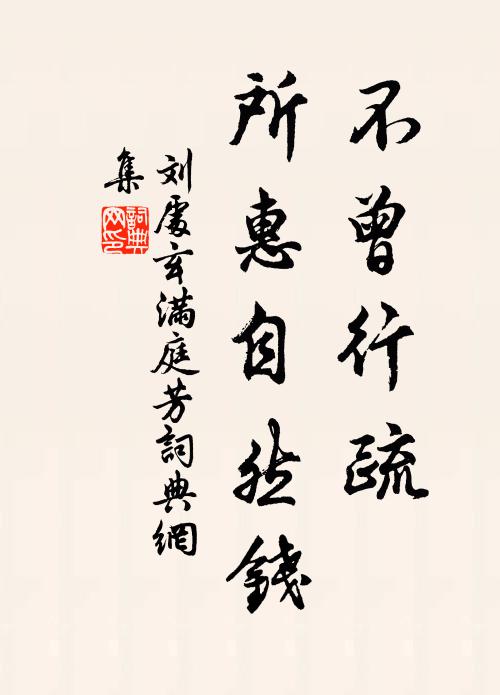 不曾行疏
所惠自然錢
刘處玄满庭芳詞典網
集
詞典网印